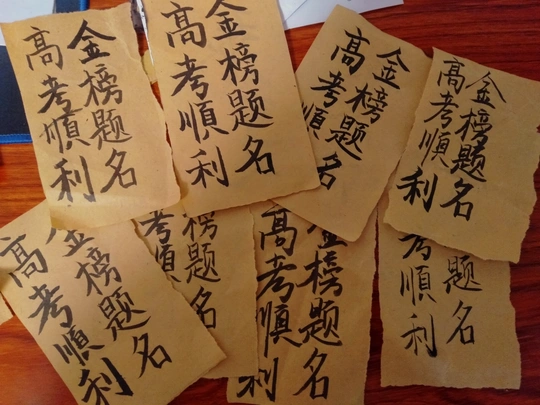 金榜题名
高考順利
金榜题名
高考順利
金榜题名
高考順
金榜题名
高考順利
金榜题名
高考順利
榜题名
考順
金榜题名
高考順利
题名
考順利